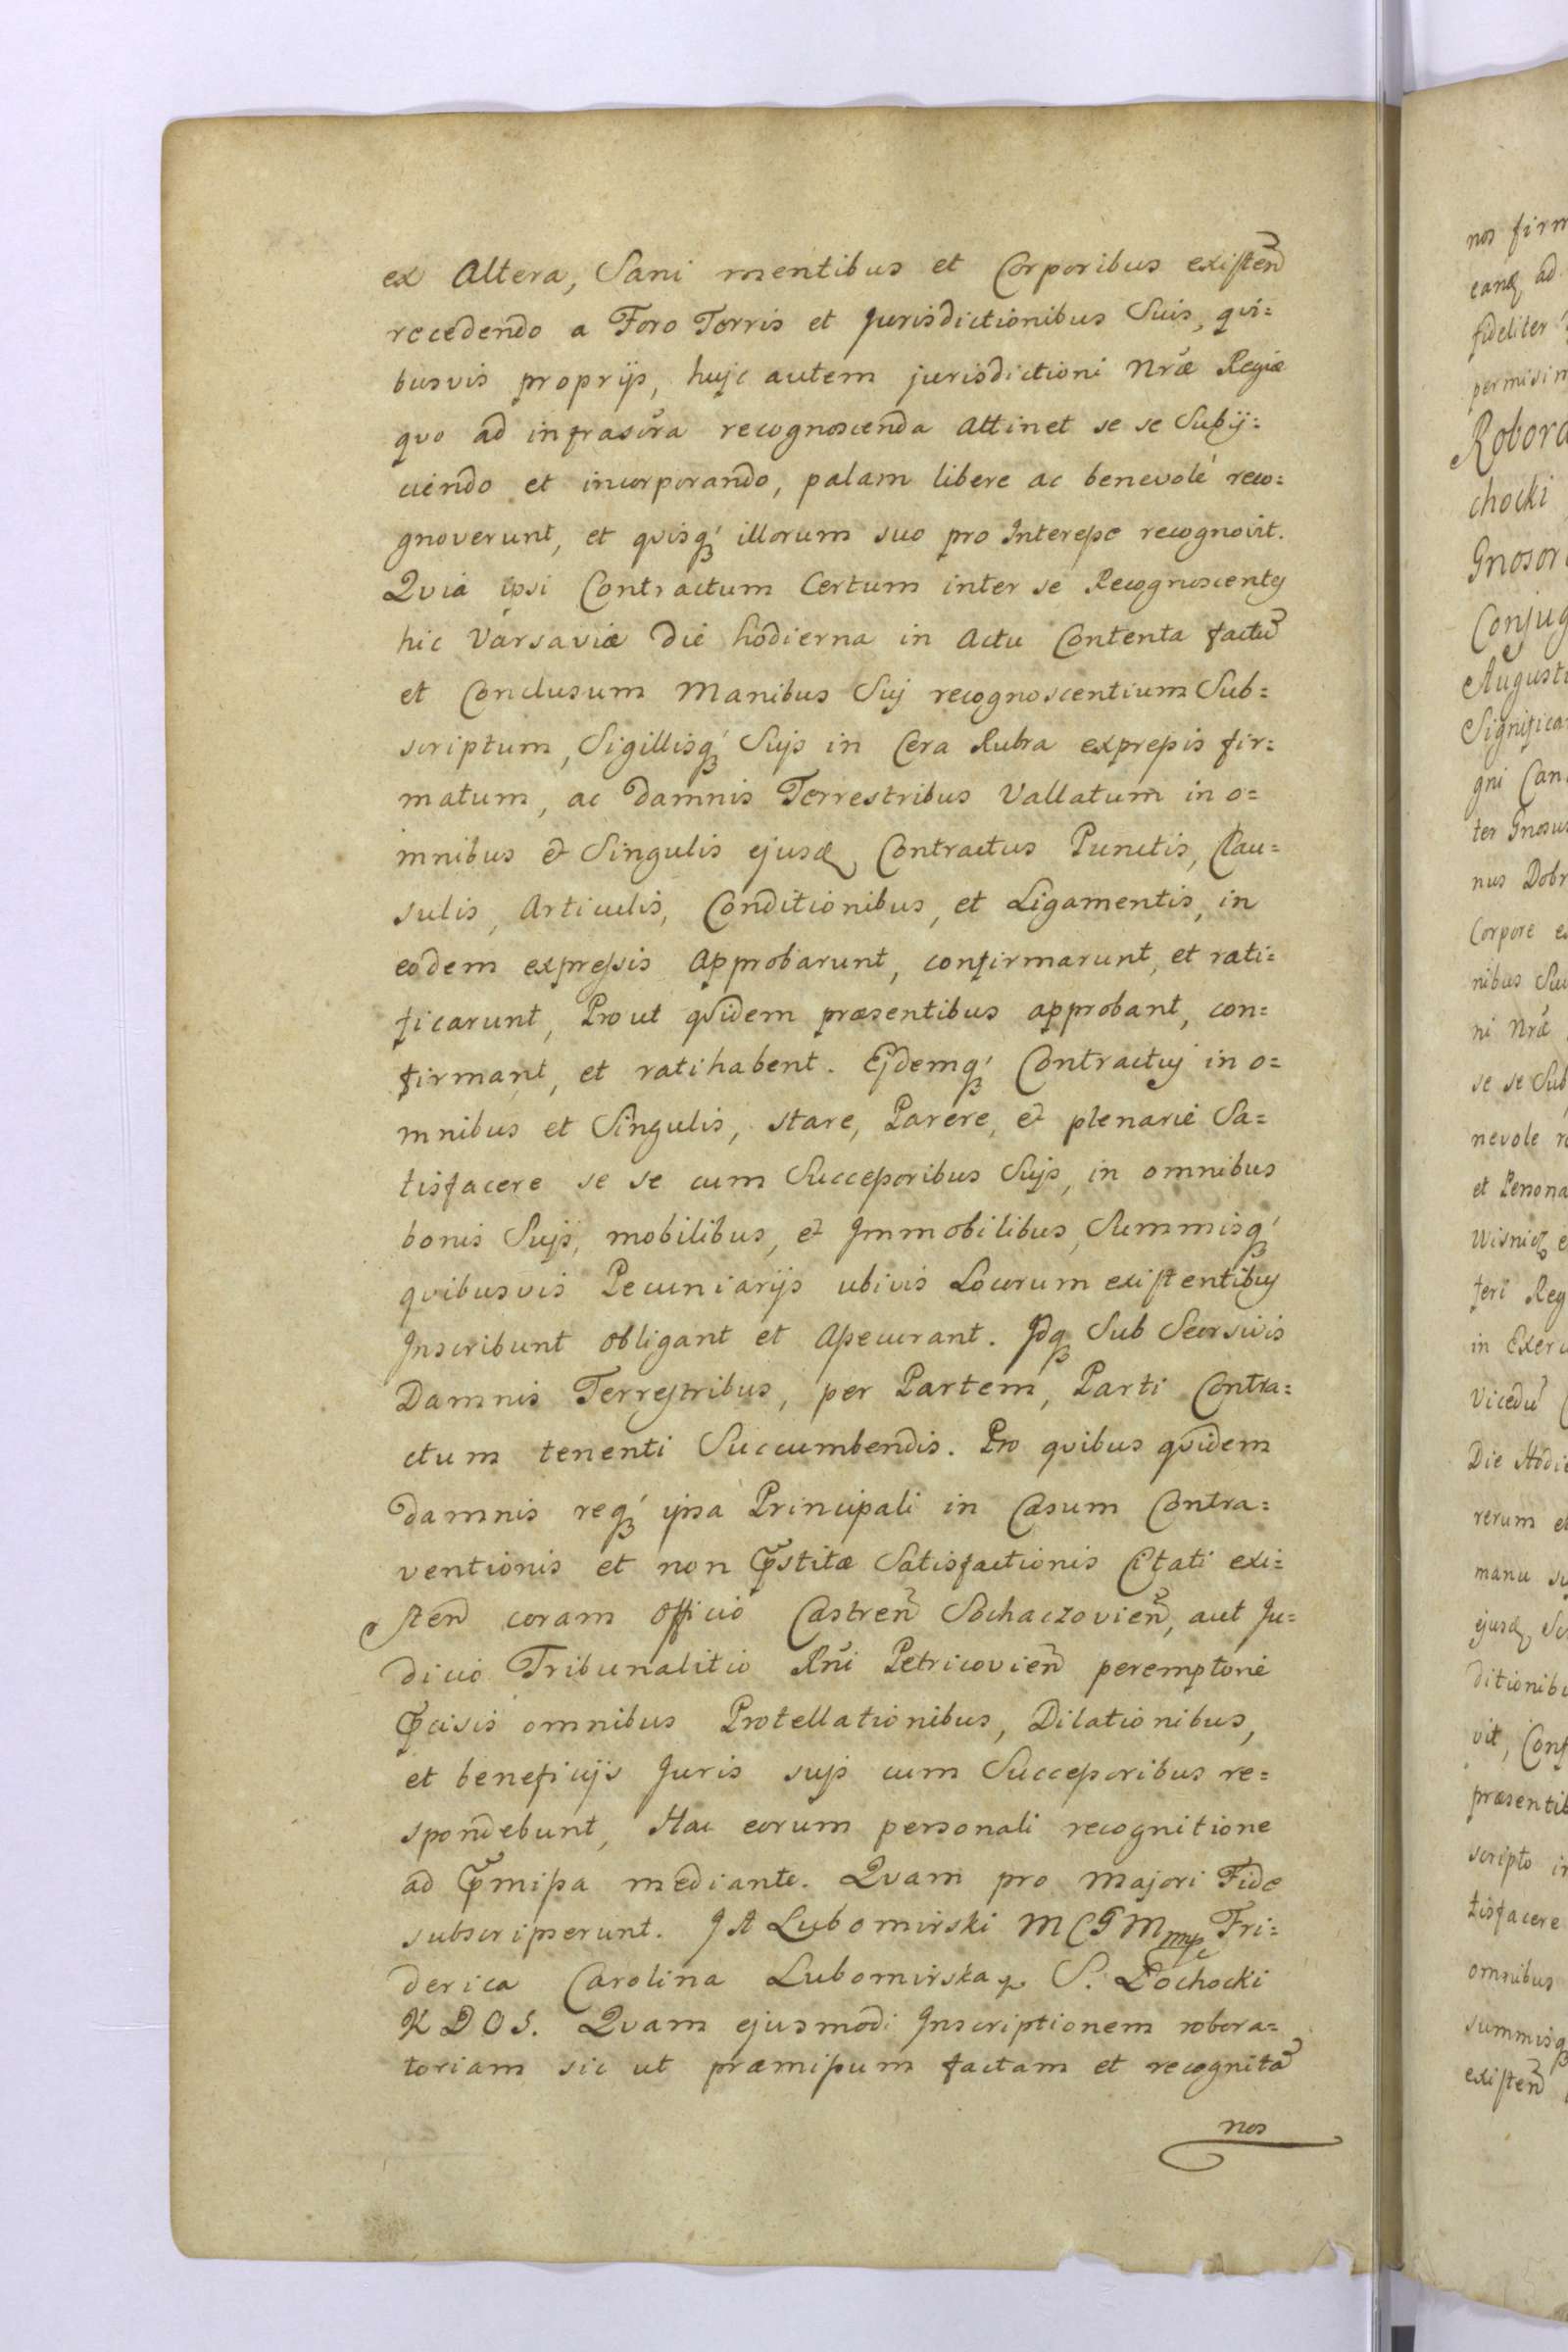 ex Altera, Sani mentibus et Corporibus existen̄
recedendo a Foro Terris et Jurisdictionibus Suis, qui=
busvis proprijs, huic autem jurisdictioni Nrǣ Regiæ
quo ad infrascr̄a recognoscenda Attinet se se Subij=
ciendo et incorporando, palam libere ac benevolé reco=
gnoverunt, et quisq́ illorum suo pro Interesse recognovit.
Quia ipsi Contractum Certum inter se Recognoscentes
hic Varsaviæ die hodierna in Actu Contenta factū
et Conclusum Manibus Suis recognoscentium Sub=
scriptum, Sigillisq́ Suis in Cera Rubra expressis fir=
matum, ac damnis Terrestribus Vallatum in o=
mnibus & Singulis ejusd, Contractus Punctis, Clau=
sulis, Articulis, Conditionibus, et Ligamentis, in
eodem expressis Approbarunt, confirmarunt, et rati=
ficarunt, Prout quidem præsentibus approbant, con=
firmant, et ratihabent. Ejdemq́ Contractuj in o=
mnibus et Singulis, stare, Parere, & plenarié Sa=
tisfacere se se cum Successoribus Suis, in omnibus
bonis Suis, mobilibus, & Immobilibus, Summisq́
quibusvis Pecuniarijs ubivis Locorum existentibus
Inscribunt obligant et Assecurant. Idq Sub Seorsivis
Damnis Terrestribus, per Partem, Parti Contra=
ctum tenenti Succumbendis. Pro quibus quidem
damnis req́ ipsa Principali in Casum Contra=
ventionis et non Pr̄stitæ Satisfactionis Citati exi=
sten̄ coram Officio Castren̄ Sochaczovien̄, aut Ju=
dicio Tribunalitio Rnī Petricovien̄ peremptorié
Pr̄cisis omnibus Protellationibus, Dilationibus,
et beneficijs Juris suis cum Successoribus re=
spondebunt, Hac eorum personali recognitione
ad Pr̄missa mediante. Quam pro majori Fide
subscripserunt. J A Lubomirski M C G M mp Fri=
derica Carolina Lubomirska S. Lochocki
K D O S. Quam ejusmodi Inscriptionem robora=
toriam sic ut præmissum factam et recognitā
nos
nos firm
eand ad
fideliter
permisim
Robora
chocki
Gnosor
Conjug
Augusti
Significa
gni Can
ter Gnosus
nus Dobr
Corpore e
nibus Sui
ni Nrǣ
se se Sub
nevole r
et Persona
Wisnicz e
feri Reg
in Exerc
Vicedū
Die Hodie
rerum et
manu su
ejusd, Sc
ditionibu
vit, Conf
præsentib
scripto in
tisfacere
omnibus
summisq
existen̄